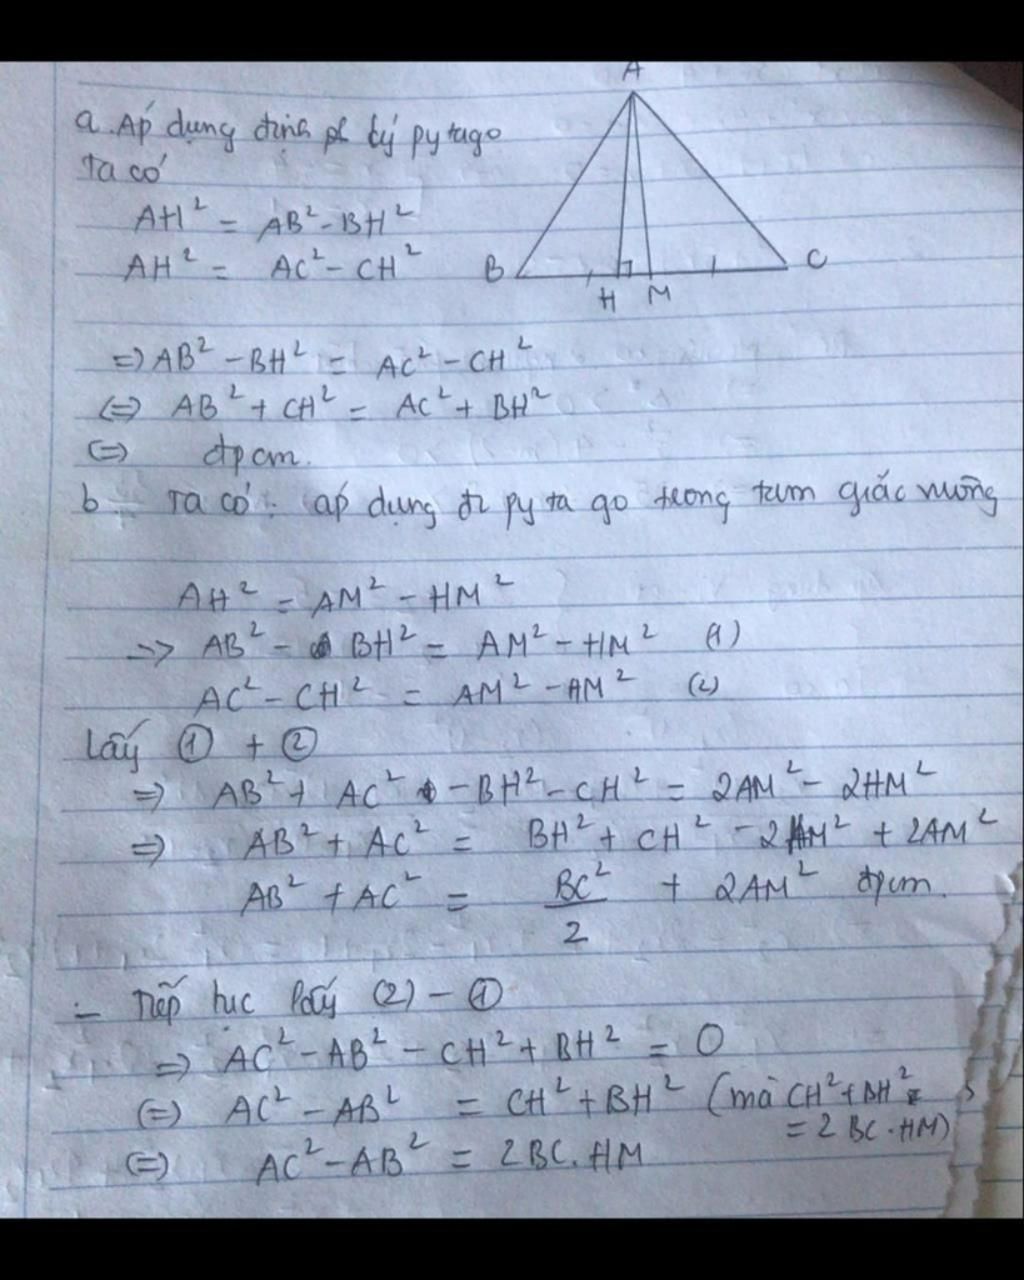 A
a. Áp dụng định lý pytago
Ta có
AH² = AB² - BH²
AH² = AC² - CH²
B
C
H M
=> AB² - BH² = AC² - CH²
<=> AB² + CH² = AC² + BH²
<=> đpcm.
b. Ta có: áp dụng đl py ta go trong tam giác vuông
AH² = AM² - HM²
=> AB² - BH² = AM² - HM² (1)
AC² - CH² = AM² - HM² (2)
Lấy ① + ②
=> AB² + AC² - BH² - CH² = 2AM² - 2HM²
=> AB² + AC² = BH² + CH² - 2HM² + 2AM²
AB² + AC² = BC²/2 + 2AM² đpcm.
- Tiếp tục lấy (2) - ①
=> AC² - AB² - CH² + BH² = 0
<=> AC² - AB² = CH² + BH² (mà CH² + BH²
= 2BC.HM)
<=> AC² - AB² = 2BC.HM